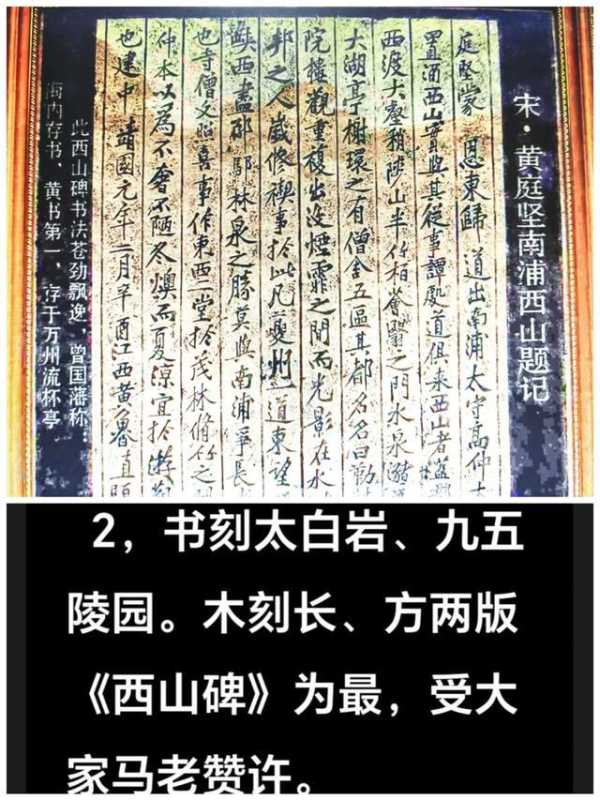 宋·黄庭坚南浦西山题记
庭堅蒙 恩東歸 道出南浦太守高仲
置酒西山實與其從事譚處道俱来西山者蓋
西渡大壑稍陟山半竹柏薈翳之門水泉瀦
大湖亭榭環之有僧舍五區其都名名曰勒
院樓觀重複出沒煙霏之間而光影在水
邦之人歲修禊事於此凡夔州一道東望
西盡邛林泉之勝莫與南浦爭長
也寺僧文照喜事作東西二堂於茂林脩竹之
仲本以為不奢不陋冬燠而夏涼宜於遊
也建中靖國元年二月辛酉江西黃魯直題
此西山碑书法苍劲飘逸，曾国藩称：
海内存书，黄书第一，存于万州流杯亭
2，书刻太白岩、九五
陵园。木刻长、方两版
《西山碑》为最，受大
家马老赞许。